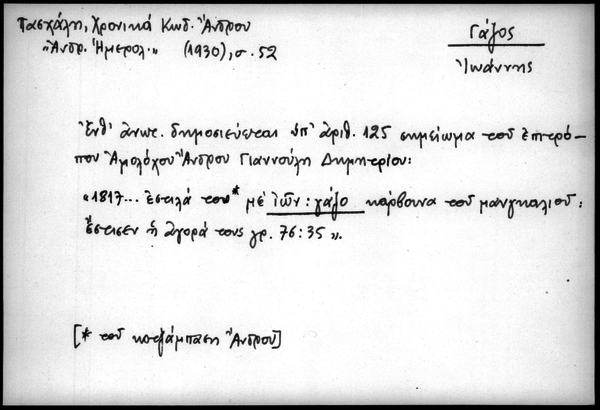 Πασχάλη, Χρονικά Κωδ. Ἄνδρου
"Ἀνδρ. Ἡμερολ." (1930), σ. 52
Γάζος
Ἰωάννης
Ἔνθ' ἀνωτ. δημοσιεύεται ὑπ' ἀριθ. 125 σημείωμα τοῦ ἐπιτρό-
που Ἀμολόχου Ἄνδρου Γιαννούλη Δημητρίου:
«1817... ἔστιλά του* μέ ἰῶν: γάζο κάρβουνα τοῦ μανγκαλιοῦ:
ἔστισεν ἡ ἀγορά τους γρ. 76:35».
[* τοῦ κοτζάμπαση Ἄνδρου]